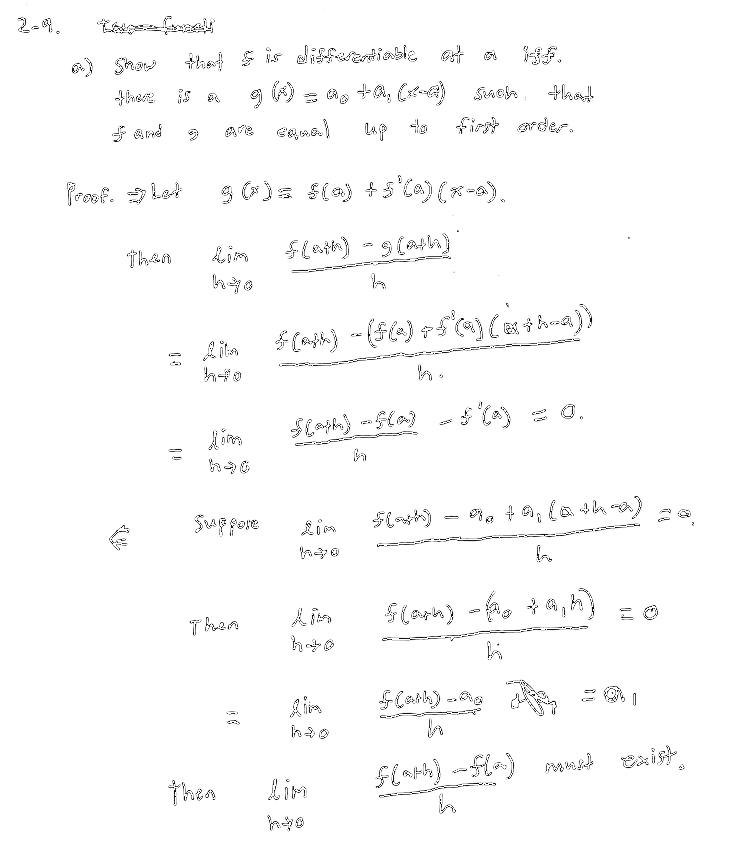 2-9.
a) Show that f is differentiable at a iff.
there is a g(x) = a₀ + a₁(x-a) such that
f and g are equal up to first order.
Proof. ⇒ Let g(x) = f(a) + f'(a)(x-a).
Then lim h→0 f(a+h) - g(a+h) / h
= lim h→0 f(a+h) - (f(a) + f'(a)(a+h-a)) / h.
= lim h→0 f(a+h) - f(a) / h - f'(a) = 0.
⇐ Suppose lim h→0 f(a+h) - a₀ + a₁(a+h-a) / h = 0.
Then lim h→0 f(a+h) - (a₀ + a₁h) / h = 0
= lim h→0 f(a+h) - a₀ / h = a₁
Then lim h→0 f(a+h) - f(a) / h must exist.